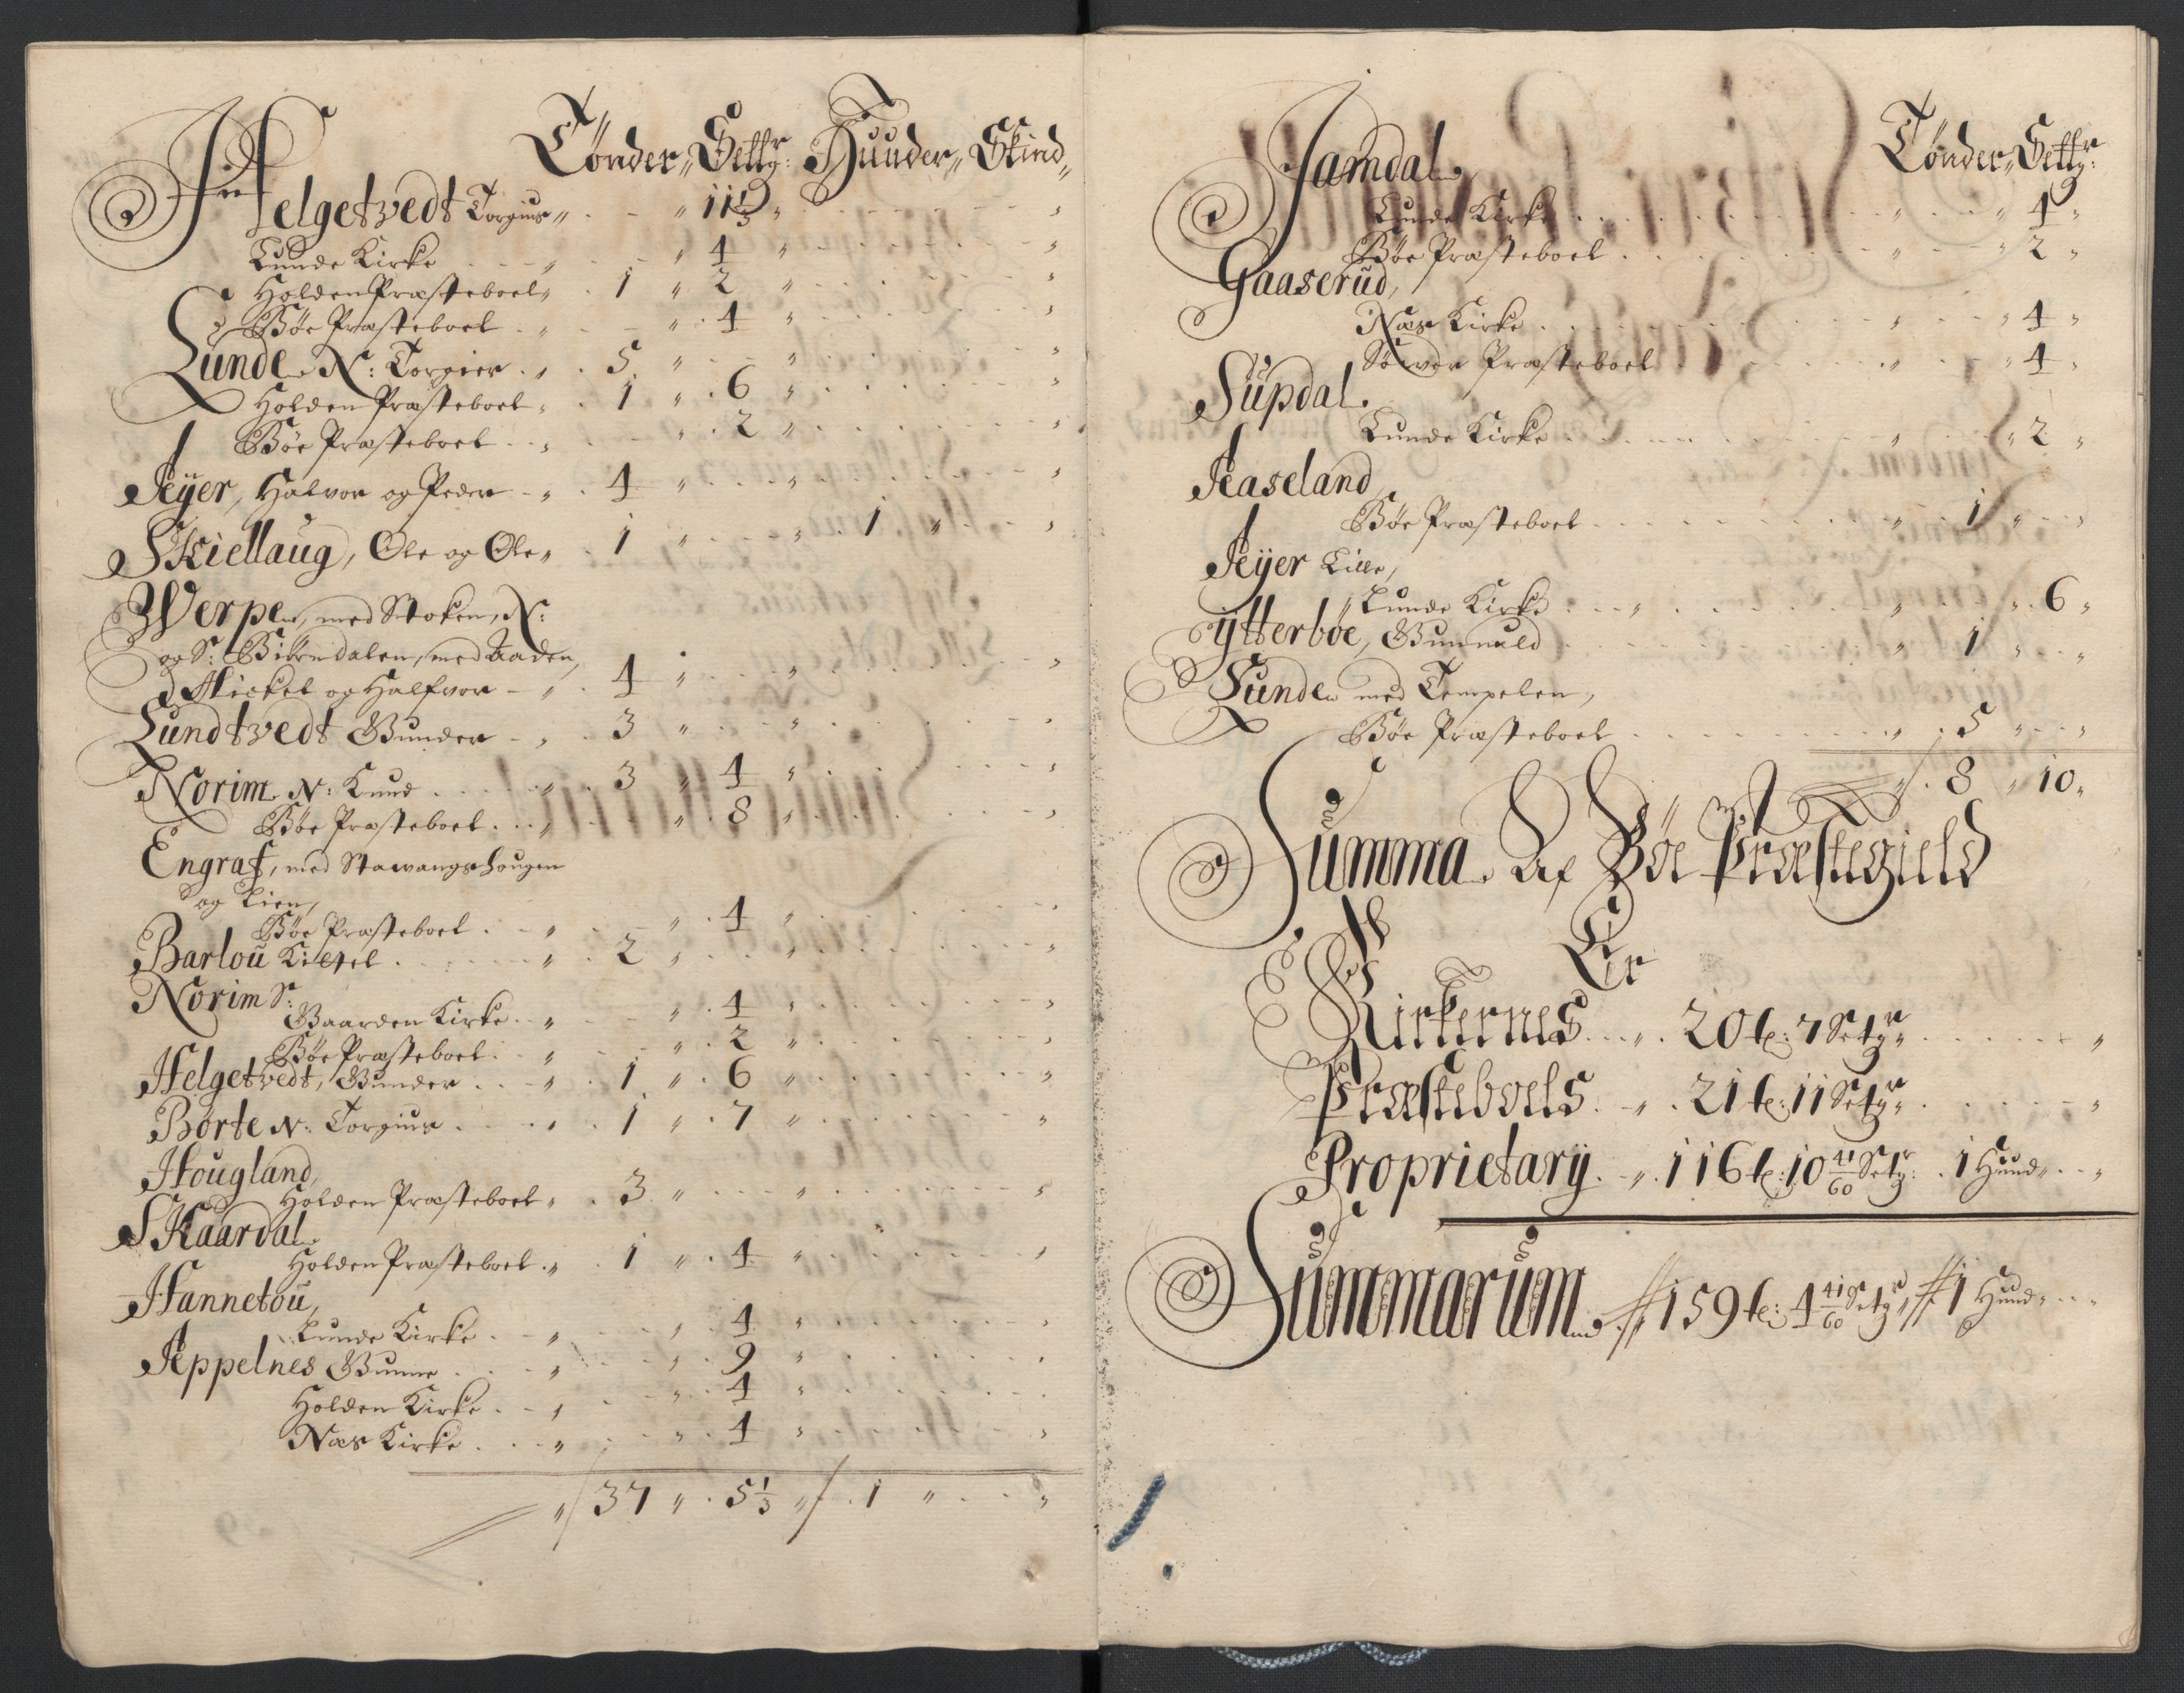 Tønder„ Settgr: Huuder„ Skind„
Helgetvedt Torgius„ 11 1/3
Lunde Kirke 4
Holden Præsteboel„ 1 „ 2
Bøe Præsteboel 4
Lunde N: Torgier 5
Holden Præsteboel 1 „ 6
Bøe Præsteboel 2
Jeÿer, Halvor og Peder 4
Skiellaug, Ole og Ole„ 1 „ 1
Werpe, med Stoken, N:
og Sr: Bibrndalen, med Aaden,
Mickel og Halfvor 4
Lundtvedt Gunder 3
Norim N: Knud 3 „ 4
Bøe Præsteboel 8
Engraf, med Stavangshougen
og Lien,
Bøe Præsteboel 4
Barlou Kiettel 2
Norim Sr:
Gaarden Kirke 4
Bøe Præsteboel 2
Helgetvedt, Gunder 1 „ 6
Børte N: Torgius 1 „ 7
Hougland,
Holden Præsteboel 3
Skaardal
Holden Præsteboel 1 „ 4
Hannetou,
Lunde Kirke 4
Jeppelnes Gunne 9
Holden Kirke 4
Næs Kirke 4
37 „ 5 1/3 „ 1
Tønder„ Settgr:
Jamdal
Lunde Kirke 4
Bøe Præsteboel 2
Gaaserud,
Næs Kirke 4
Præsteboel 4
Supdal
Lunde Kirke 2
Jeaseland
Bøe Præsteboel 1
Jeÿer Lille,
Lunde Kirke 6
Ÿtterboe, Gunnuld 1
Sunde med Tempelen,
Bøe Præsteboel 5
8 „ 10„
Summa Af Bøe Præstegield
Er
Kirkernes 20 t: 7 Setgr„
Præsteboels 21 t: 11 Setgr„
Proprietarÿ 116 t: 10 41/60 Setgr: 1 Hund„
Summarum 159 t: 4 41/60 Setgr, 1 Hund„